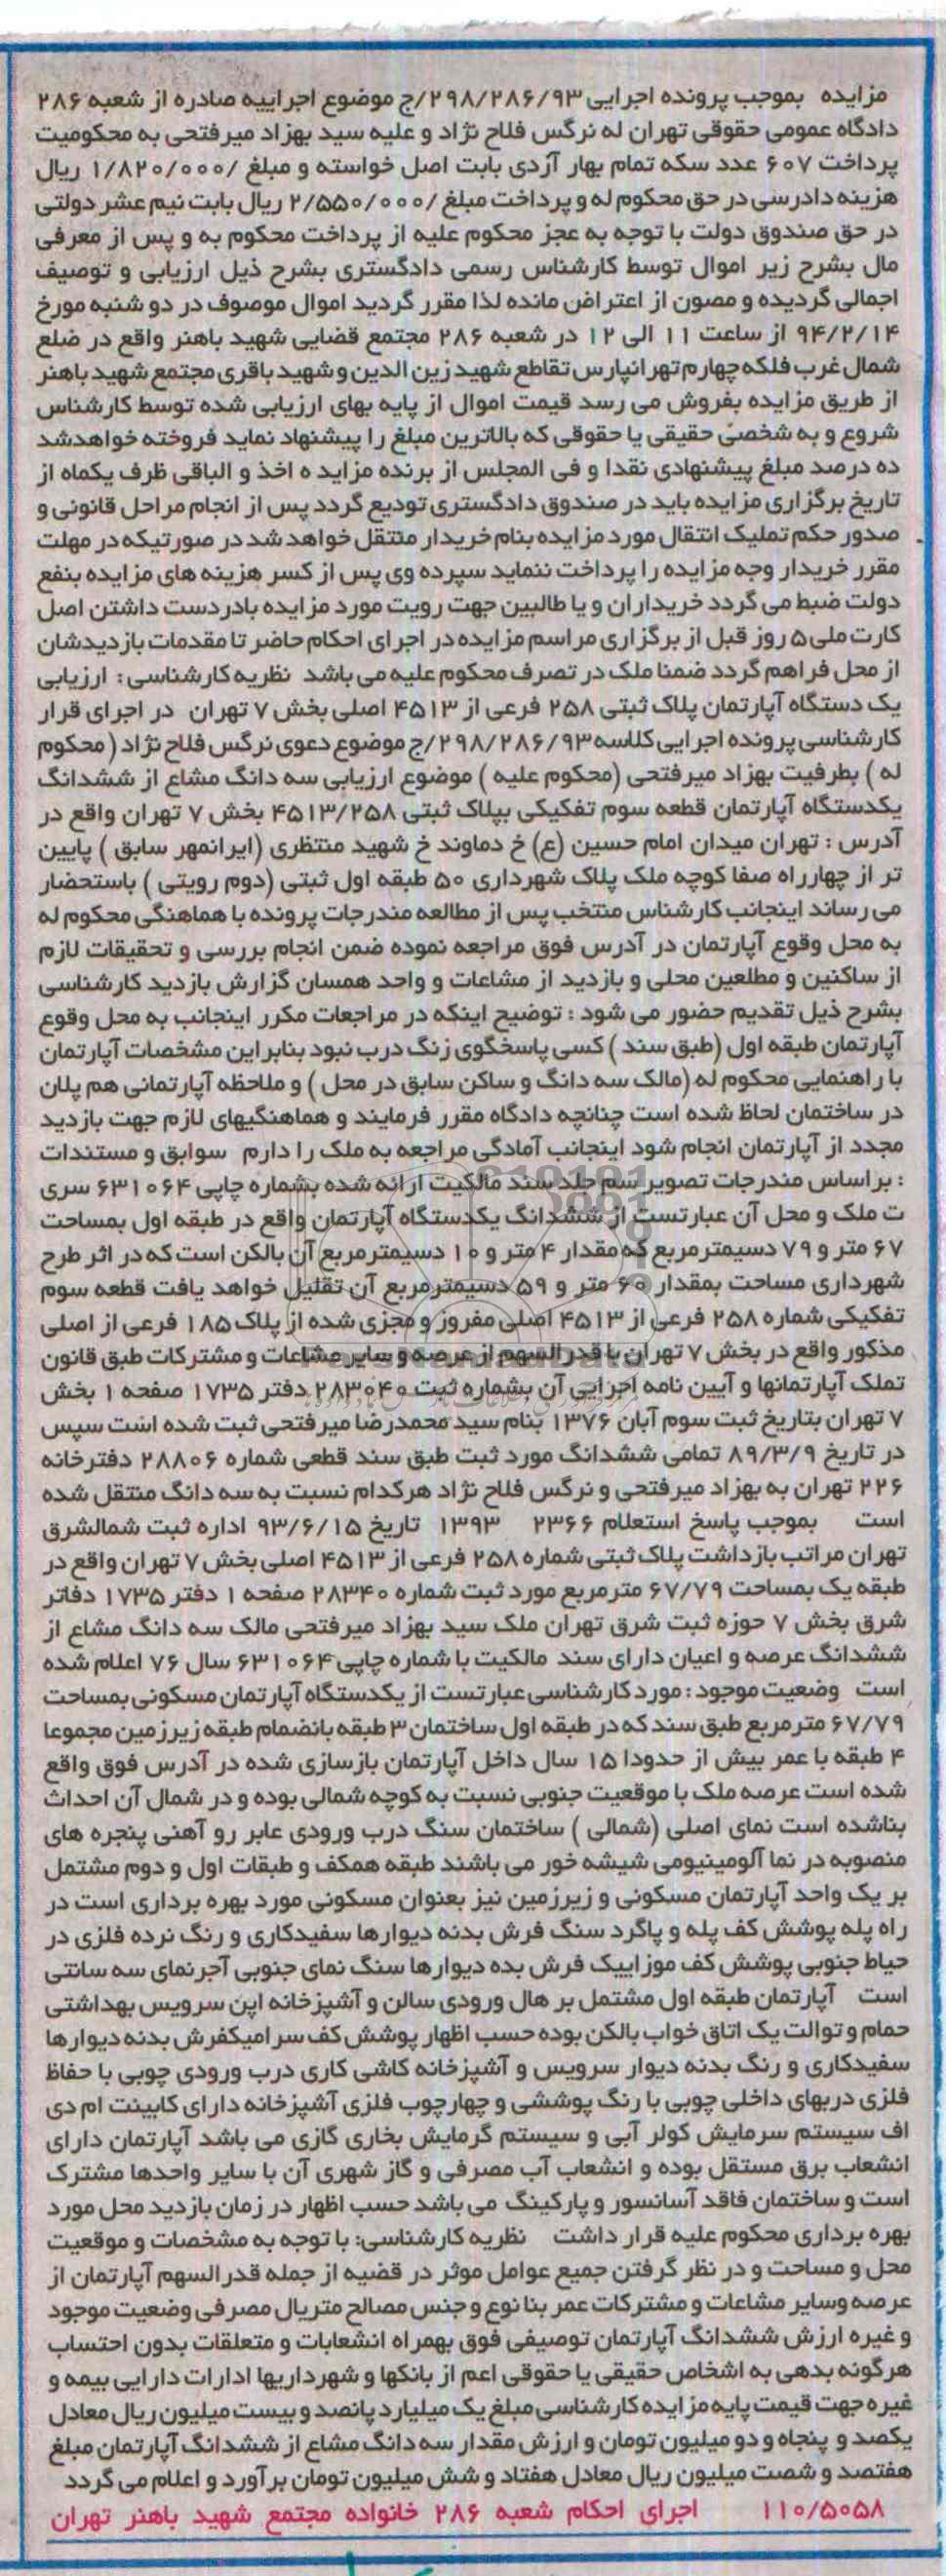 مزایده   بموجب پرونده اجرایی ۲۹۸/۲۸۶/۹۳/ج موضوع اجراییه صادره از شعبه ۲۸۶
دادگاه عمومی حقوقی تهران له نرگس فلاح نژاد و علیه سید بهزاد میرفتحی به محکومیت
پرداخت ۶۰۷ عدد سکه تمام بهار آزدی بابت اصل خواسته و مبلغ /۱/۸۲۰/۰۰۰ ریال
هزینه دادرسی در حق محکوم له و پرداخت مبلغ /۲/۵۵۰/۰۰۰ ریال بابت نیم عشر دولتی
در حق صندوق دولت با توجه به عجز محکوم علیه از پرداخت محکوم به و پس از معرفی
مال بشرح زیر اموال توسط کارشناس رسمی دادگستری بشرح ذیل ارزیابی و توصیف
اجمالی گردیده و مصون از اعتراض مانده لذا مقرر گردید اموال موصوف در دو شنبه مورخ
۹۴/۲/۱۴ از ساعت ۱۱ الی ۱۲ در شعبه ۲۸۶ مجتمع قضایی شهید باهنر واقع در ضلع
شمال غرب فلکه چهارم تهرانپارس تقاطع شهید زین الدین و شهید باقری مجتمع شهید باهنر
از طریق مزایده بفروش می رسد قیمت اموال از پایه بهای ارزیابی شده توسط کارشناس
شروع و به شخصی حقیقی یا حقوقی که بالاترین مبلغ را پیشنهاد نماید فروخته خواهدشد
ده درصد مبلغ پیشنهادی نقدا و فی المجلس از برنده مزاید ه اخذ و الباقی ظرف یکماه از
تاریخ برگزاری مزایده باید در صندوق دادگستری تودیع گردد پس از انجام مراحل قانونی و
صدور حکم تملیک انتقال مورد مزایده بنام خریدار منتقل خواهد شد در صورتیکه در مهلت
مقرر خریدار وجه مزایده را پرداخت ننماید سپرده وی پس از کسر هزینه های مزایده بنفع
دولت ضبط می گردد خریداران و یا طالبین جهت رویت مورد مزایده بادردست داشتن اصل
کارت ملی ۵ روز قبل از برگزاری مراسم مزایده در اجرای احکام حاضر تا مقدمات بازدیدشان
از محل فراهم گردد ضمنا ملک در تصرف محکوم علیه می باشد  نظریه کارشناسی : ارزیابی
یک دستگاه آپارتمان پلاک ثبتی ۲۵۸ فرعی از ۴۵۱۳ اصلی بخش ۷ تهران  در اجرای قرار
کارشناسی پرونده اجرایی کلاسه ۲۹۸/۲۸۶/۹۳/ج موضوع دعوی نرگس فلاح نژاد ( محکوم
له ) بطرفیت بهزاد میرفتحی (محکوم علیه ) موضوع ارزیابی سه دانگ مشاع از ششدانگ
یکدستگاه آپارتمان قطعه سوم تفکیکی بپلاک ثبتی ۴۵۱۳/۲۵۸ بخش ۷ تهران واقع در
آدرس : تهران میدان امام حسین (ع) خ دماوند خ شهید منتظری (ایرانمهر سابق ) پایین
تر از چهارراه صفا کوچه ملک پلاک شهرداری ۵۰ طبقه اول ثبتی (دوم رویتی ) باستحضار
می رساند اینجانب کارشناس منتخب پس از مطالعه مندرجات پرونده با هماهنگی محکوم له
به محل وقوع آپارتمان در آدرس فوق مراجعه نموده ضمن انجام بررسی و تحقیقات لازم
از ساکنین و مطلعین محلی و بازدید از مشاعات و واحد همسان گزارش بازدید کارشناسی
بشرح ذیل تقدیم حضور می شود : توضیح اینکه در مراجعات مکرر اینجانب به محل وقوع
آپارتمان طبقه اول (طبق سند ) کسی پاسخگوی زنگ درب نبود بنابراین مشخصات آپارتمان
با راهنمایی محکوم له (مالک سه دانگ و ساکن سابق در محل ) و ملاحظه آپارتمانی هم پلان
در ساختمان لحاظ شده است چنانچه دادگاه مقرر فرمایند و هماهنگیهای لازم جهت بازدید
مجدد از آپارتمان انجام شود اینجانب آمادگی مراجعه به ملک را دارم  سوابق و مستندات
: براساس مندرجات تصویر سم جلد سند مالکیت ارائه شده بشماره چاپی ۶۳۱۰۶۴ سری
ت ملک و محل آن عبارتست از ششدانگ یکدستگاه آپارتمان واقع در طبقه اول بمساحت
۶۷ متر و ۷۹ دسیمترمربع که مقدار ۴ متر و ۱۰ دسیمترمربع آن بالکن است که در اثر طرح
شهرداری مساحت بمقدار ۶۰ متر و ۵۹ دسیمترمربع آن تقلیل خواهد یافت قطعه سوم
تفکیکی شماره ۲۵۸ فرعی از ۴۵۱۳ اصلی مفروز و مجزی شده از پلاک ۱۸۵ فرعی از اصلی
مذکور واقع در بخش ۷ تهران با قدرالسهم از عرصه و سایر مشاعات و مشترکات طبق قانون
تملک آپارتمانها و آیین نامه اجرایی آن بشماره ثبت ۲۸۳۰۴۰ دفتر ۱۷۳۵ صفحه ۱ بخش
۷ تهران بتاریخ ثبت سوم آبان ۱۳۷۶ بنام سید محمدرضا میرفتحی ثبت شده است سپس
در تاریخ ۸۹/۳/۹ تمامی ششدانگ مورد ثبت طبق سند قطعی شماره ۲۸۸۰۶ دفترخانه
۲۲۶ تهران به بهزاد میرفتحی و نرگس فلاح نژاد هرکدام نسبت به سه دانگ منتقل شده
است   بموجب پاسخ استعلام ۲۳۶۶   ۱۳۹۳   تاریخ ۹۳/۶/۱۵ اداره ثبت شمالشرق
تهران مراتب بازداشت پلاک ثبتی شماره ۲۵۸ فرعی از ۴۵۱۳ اصلی بخش ۷ تهران واقع در
طبقه یک بمساحت ۶۷/۷۹ مترمربع مورد ثبت شماره ۲۸۳۴۰ صفحه ۱ دفتر ۱۷۳۵ دفاتر
شرق بخش ۷ حوزه ثبت شرق تهران ملک سید بهزاد میرفتحی مالک سه دانگ مشاع از
ششدانگ عرصه و اعیان دارای سند  مالکیت با شماره چاپی ۶۳۱۰۶۴ سال ۷۶ اعلام شده
است   وضعیت موجود : مورد کارشناسی عبارتست از یکدستگاه آپارتمان مسکونی بمساحت
۶۷/۷۹ مترمربع طبق سند که در طبقه اول ساختمان ۳ طبقه بانضمام طبقه زیرزمین مجموعا
۴ طبقه با عمر بیش از حدودا ۱۵ سال داخل آپارتمان بازسازی شده در آدرس فوق واقع
شده است عرصه ملک با موقعیت جنوبی نسبت به کوچه شمالی بوده و در شمال آن احداث
بناشده است نمای اصلی (شمالی ) ساختمان سنگ درب ورودی عابر رو آهنی پنجره های
منصوبه در نما آلومینیومی شیشه خور می باشند طبقه همکف و طبقات اول و دوم مشتمل
بر یک واحد آپارتمان مسکونی و زیرزمین نیز بعنوان مسکونی مورد بهره برداری است در
راه پله پوشش کف پله و پاگرد سنگ فرش بدنه دیوارها سفیدکاری و رنگ نرده فلزی در
حیاط جنوبی پوشش کف موزاییک فرش بده دیوارها سنگ نمای جنوبی آجرنمای سه سانتی
است   آپارتمان طبقه اول مشتمل بر هال ورودی سالن و آشپزخانه اپن سرویس بهداشتی
حمام و توالت یک اتاق خواب بالکن بوده حسب اظهار پوشش کف سرامیکفرش بدنه دیوارها
سفیدکاری و رنگ بدنه دیوار سرویس و آشپزخانه کاشی کاری درب ورودی چوبی با حفاظ
فلزی دربهای داخلی چوبی با رنگ پوششی و چهارچوب فلزی آشپزخانه دارای کابینت ام دی
اف سیستم سرمایش کولر آبی و سیستم گرمایش بخاری گازی می باشد آپارتمان دارای
انشعاب برق مستقل بوده و انشعاب آب مصرفی و گاز شهری آن با سایر واحدها مشترک
است و ساختمان فاقد آسانسور و پارکینگ می باشد حسب اظهار در زمان بازدید محل مورد
بهره برداری محکوم علیه قرار داشت   نظریه کارشناسی: با توجه به مشخصات و موقعیت
محل و مساحت و در نظر گرفتن جمیع عوامل موثر در قضیه از جمله قدرالسهم آپارتمان از
عرصه وسایر مشاعات و مشترکات عمر بنا نوع و جنس مصالح متریال مصرفی وضعیت موجود
و غیره ارزش ششدانگ آپارتمان توصیفی فوق بهمراه انشعابات و متعلقات بدون احتساب
هرگونه بدهی به اشخاص حقیقی یا حقوقی اعم از بانکها و شهرداریها ادارات دارایی بیمه و
غیره جهت قیمت پایه مزایده کارشناسی مبلغ یک میلیارد پانصد و بیست میلیون ریال معادل
یکصد و پنجاه و دو میلیون تومان و ارزش مقدار سه دانگ مشاع از ششدانگ آپارتمان مبلغ
هفتصد و شصت میلیون ریال معادل هفتاد و شش میلیون تومان برآورد و اعلام می گردد
۱۱۰/۵۰۵۸   اجرای احکام شعبه ۲۸۶ خانواده مجتمع شهید باهنر تهران